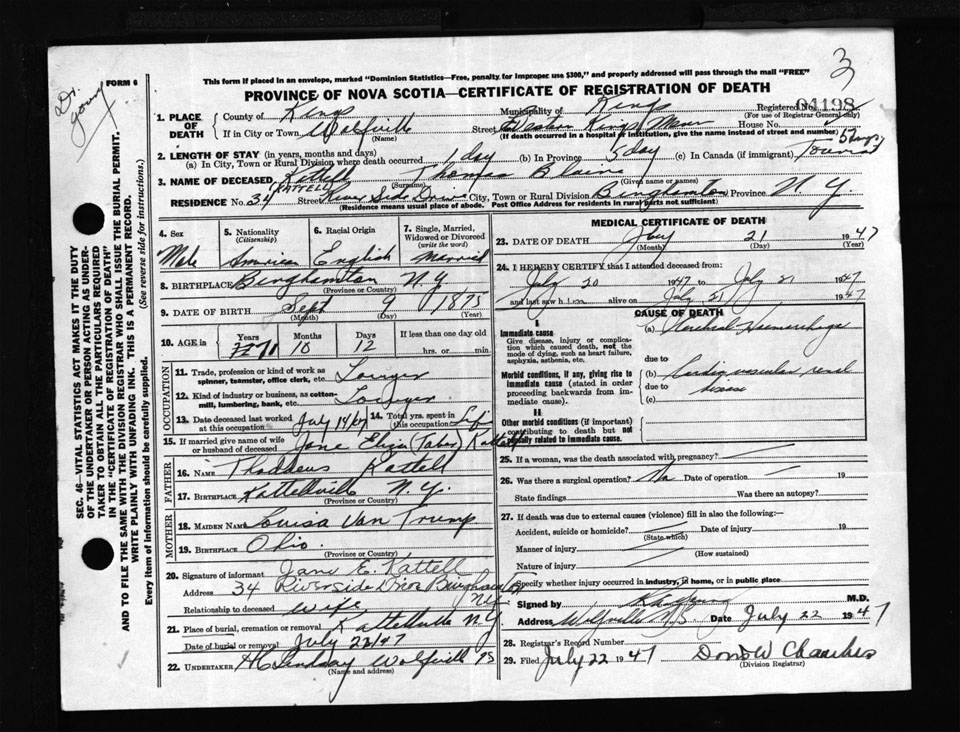 Dr. Young
FORM 6
3
This form if placed in an envelope, marked "Dominion Statistics—Free, penalty for improper use $300," and properly addressed will pass through the mail "FREE"
PROVINCE OF NOVA SCOTIA—CERTIFICATE OF REGISTRATION OF DEATH
1. PLACE OF DEATH
County of Kings Municipality of Kings Registered No. 04198
(For use of Registrar General only)
If in City or Town Wolfville Street Eastern Kings Mem House No.
(Name) (If death occurred in a hospital or institution, give the name instead of street and number)
2. LENGTH OF STAY (in years, months and days)
(a) In City, Town or Rural Division where death occurred 1 day (b) In Province 5 day (c) In Canada (if immigrant) 5 days Tourist
3. NAME OF DECEASED Kattell Thomas Blaine
(KATTELL) (Surname) (Given name or names)
RESIDENCE No. 34 Street River Side Drive City, Town or Rural Division Binghamton Province N. Y.
(Residence means usual place of abode. Post Office Address for residents in rural parts not sufficient)
4. Sex Male
5. Nationality (Citizenship) American
6. Racial Origin English
7. Single, Married, Widowed or Divorced (write the word) Married
8. BIRTHPLACE Binghamton N. Y.
(Province or Country)
9. DATE OF BIRTH Sept 9 1875
(Month) (Day) (Year)
10. AGE in Years 71 Months 10 Days 12 If less than one day old
hrs. or min.
OCCUPATION
11. Trade, profession or kind of work as spinner, teamster, office clerk, etc. Lawyer
12. Kind of industry or business, as cotton-mill, lumbering, bank, etc. Lawyer
13. Date deceased last worked at this occupation July 14/47 14. Total yrs. spent in this occupation Life
15. If married give name of wife or husband of deceased Jane Eliza (Taber) Kattell
FATHER
16. NAME Thaddeus Kattell
17. BIRTHPLACE Kattellville N. Y.
(Province or Country)
MOTHER
18. MAIDEN NAME Louisa Van Trump
19. BIRTHPLACE Ohio
(Province or Country)
20. Signature of informant Jane E. Kattell
Address 34 Riverside Drive Binghamton NY
Relationship to deceased wife
21. Place of burial, cremation or removal Kattellville N Y
Date of burial or removal July 22/47
22. UNDERTAKER H C Lindsay Wolfville NS
(Name and address)
MEDICAL CERTIFICATE OF DEATH
23. DATE OF DEATH July 21 1947
(Month) (Day) (Year)
24. I HEREBY CERTIFY that I attended deceased from:
July 20 1947 to July 21 1947
and last saw him alive on July 21 1947
CAUSE OF DEATH
I
Immediate cause
Give disease, injury or complication which caused death, not the mode of dying, such as heart failure, asphyxia, asthenia, etc.
(a) Cerebral Haemorrhage
due to
Morbid conditions, if any, giving rise to immediate cause (stated in order proceeding backwards from immediate cause).
(b) Cardio vascular renal disease
due to
(c)
II
Other morbid conditions (if important) contributing to death but not causally related to immediate cause.
25. If a woman, was the death associated with pregnancy?
26. Was there a surgical operation? No Date of operation 19
State findings Was there an autopsy?
27. If death was due to external causes (violence) fill in also the following:—
Accident, suicide or homicide? Date of injury 19
(State which)
Manner of injury
(How sustained)
Nature of injury
Specify whether injury occurred in industry, in home, or in public place
Signed by M.D.
Address Wolfville N.S. Date July 22 1947
28. Registrar's Record Number
29. Filed July 22 1947
(Division Registrar)
SEC. 46—VITAL STATISTICS ACT MAKES IT THE DUTY
OF THE UNDERTAKER OR PERSON ACTING AS UNDER-
TAKER TO OBTAIN ALL THE PARTICULARS REQUIRED
IN THE "CERTIFICATE OF REGISTRATION OF DEATH"
AND TO FILE THE SAME WITH THE DIVISION REGISTRAR WHO SHALL ISSUE THE BURIAL PERMIT.
WRITE PLAINLY WITH UNFADING INK. THIS IS A PERMANENT RECORD.
Every item of information should be carefully supplied. (See reverse side for instructions.)